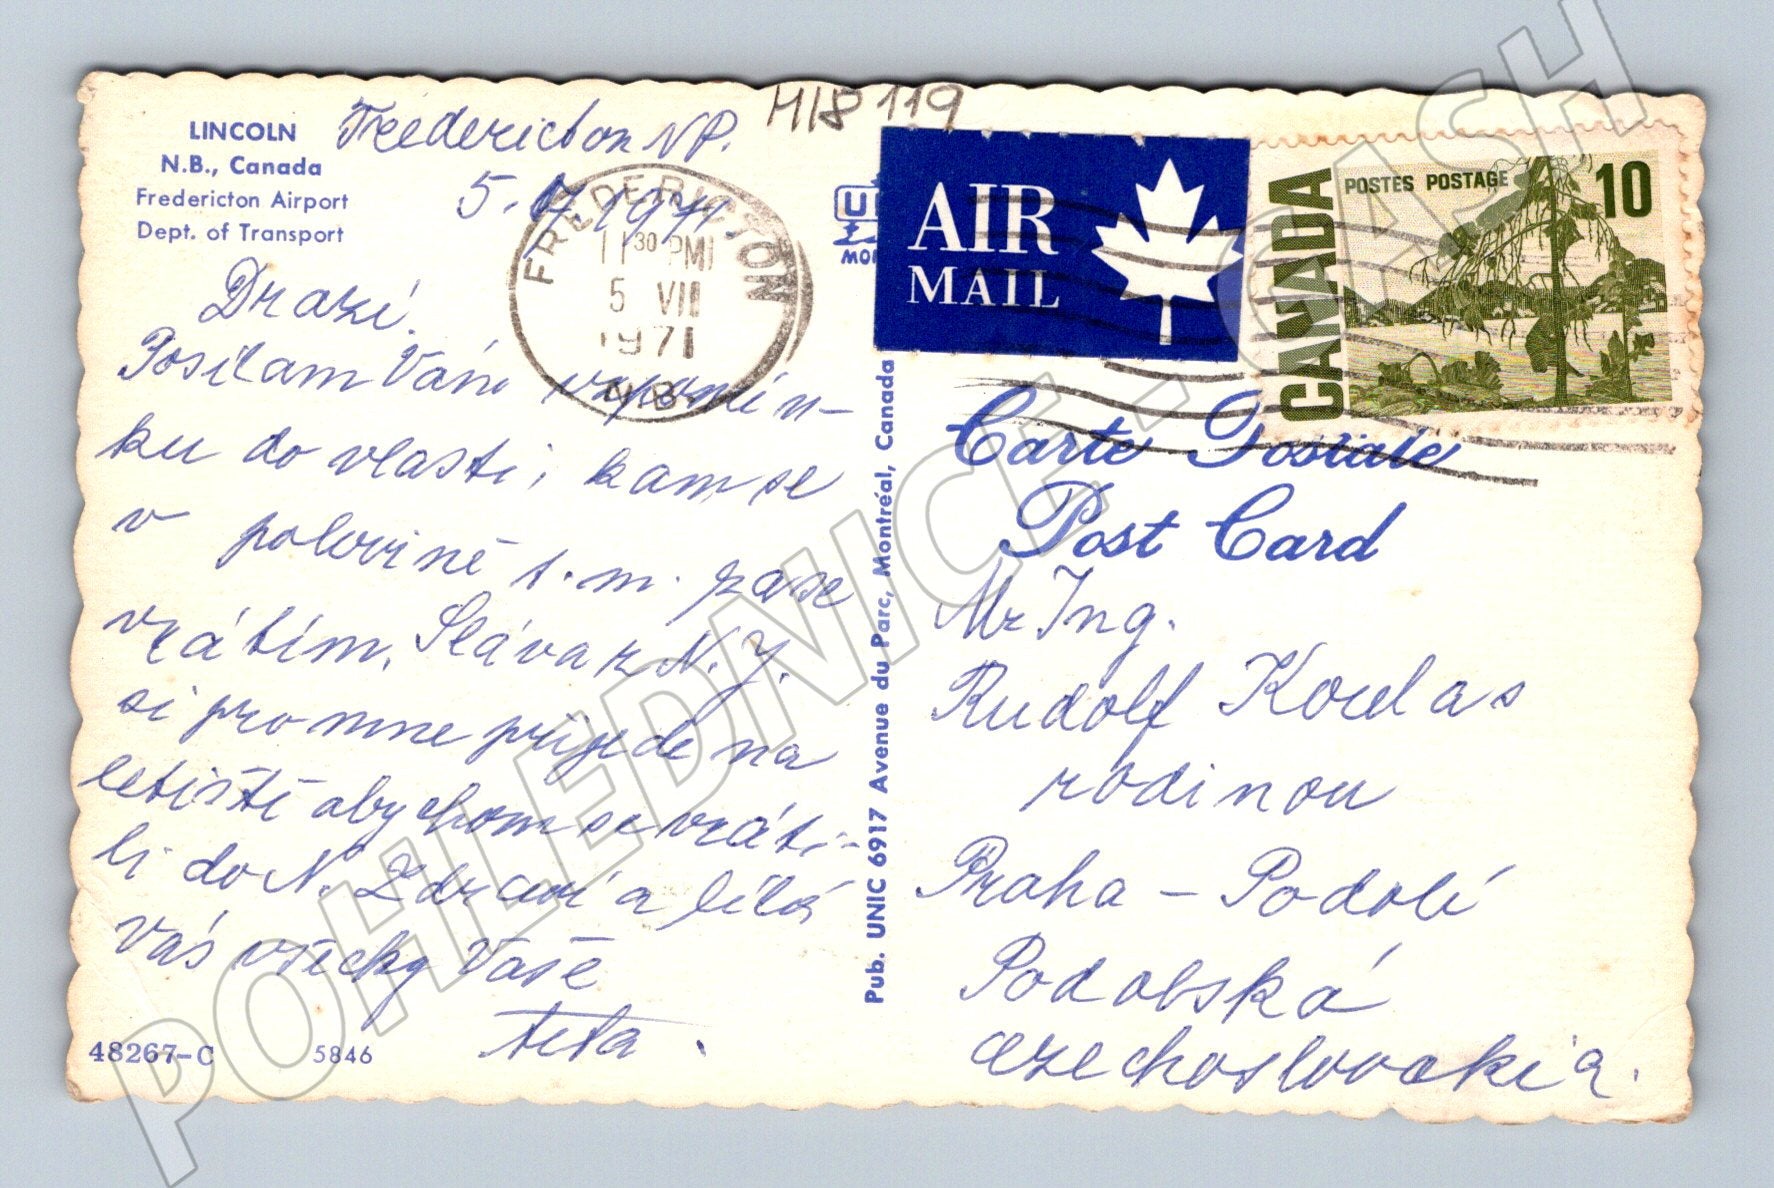 LINCOLN
N.B., Canada
Fredericton Airport
Dept. of Transport
Fredericton NP.
5. 7. 1971.
H18 119
FREDERICTON
11 30 PM
5 VII
1971
N.B.
AIR
MAIL
CANADA
POSTES POSTAGE
10
Drazí.
Posílam Vám vzpomín-
ku do vlasti, kam se
v polovině t.m. zase
vrátím. Sláva z N.J.
si pro mne přijede na
letiště abychom se vráti-
li do N. Zdraví a líbá
Vás všecky Vaše
teta.
48267-C
5846
Pub. UNIC 6917 Avenue du Parc, Montréal, Canada
Carte Postale
Post Card
Mr Ing.
Rudolf Koudas
rodinou
Praha - Podolí
Podolská
Czechoslovakia.
POHLEDNICE.CASH